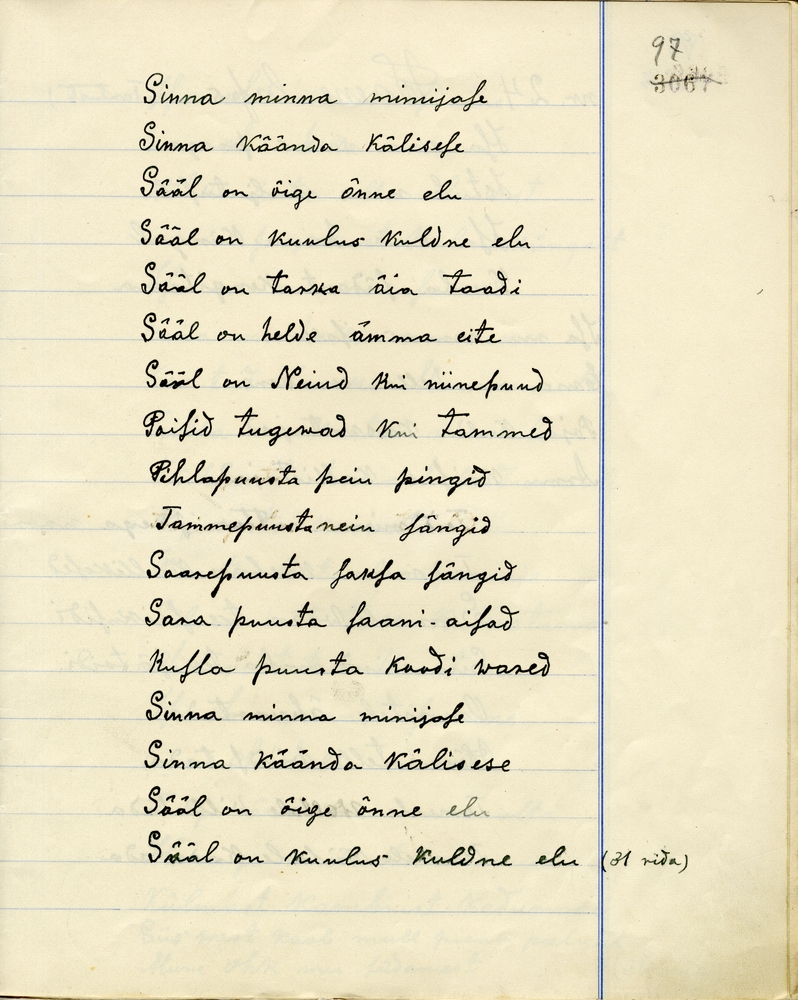 97
3067
Sinna minna minijase
Sinna käända kälisese
Sääl on õige õnne elu
Sääl on kuulus kuldne elu
Sääl on tarka äia taadi
Sääl on helde ämma eite
Sääl on Neiud kui niinepuud
Poisid tugewad kui tammed
Pihlapuusta peiu pingid
Tammepuusta neiu sängid
Saarepuusta saksa sängid
Sara puusta saani-aisad
Kusla puusta koodi wared
Sinna minna minijase
Sinna käända kälisese
Sääl on õige õnne elu
Sääl on kuulus kuldne elu (31 rida)